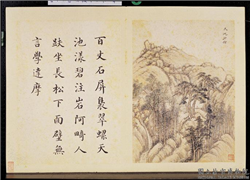 百丈石屏裊翠螺天
池漾碧注岩阿畸人
趺坐長松下面壁無
言學達摩